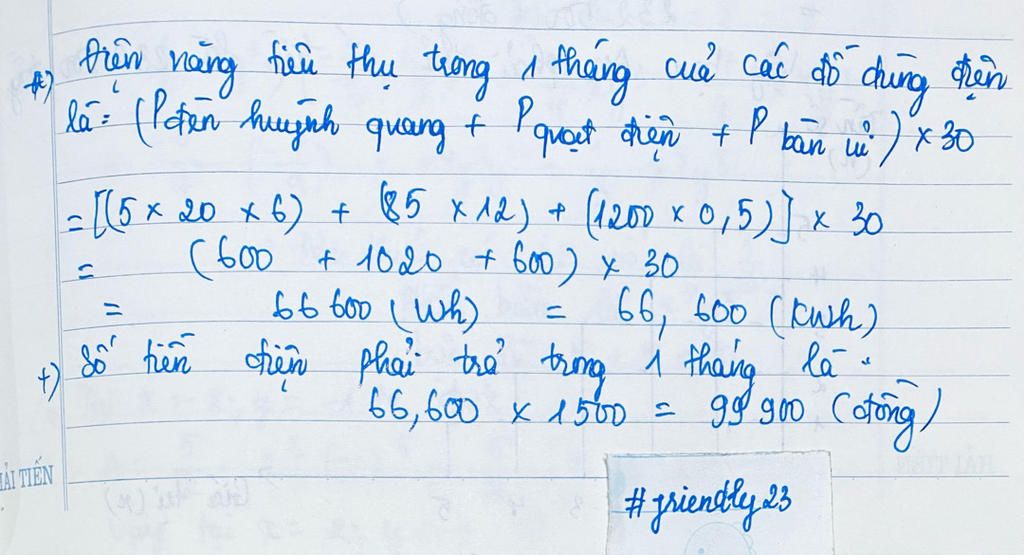 *) Điện năng tiêu thụ trong 1 tháng cuả các đồ dùng điện
là: (P đèn huỳnh quang + P quạt điện + P bàn ủi) x 30
= [(5 x 20 x 6) + (85 x 12) + (1200 x 0,5)] x 30
= (600 + 1020 + 600) x 30
= 66 600 (Wh) = 66, 600 (kWh)
+) Số tiền điện phải trả trong 1 tháng là:
66,600 x 1500 = 99 900 (đồng)
ẢI TIẾN
#friendly23